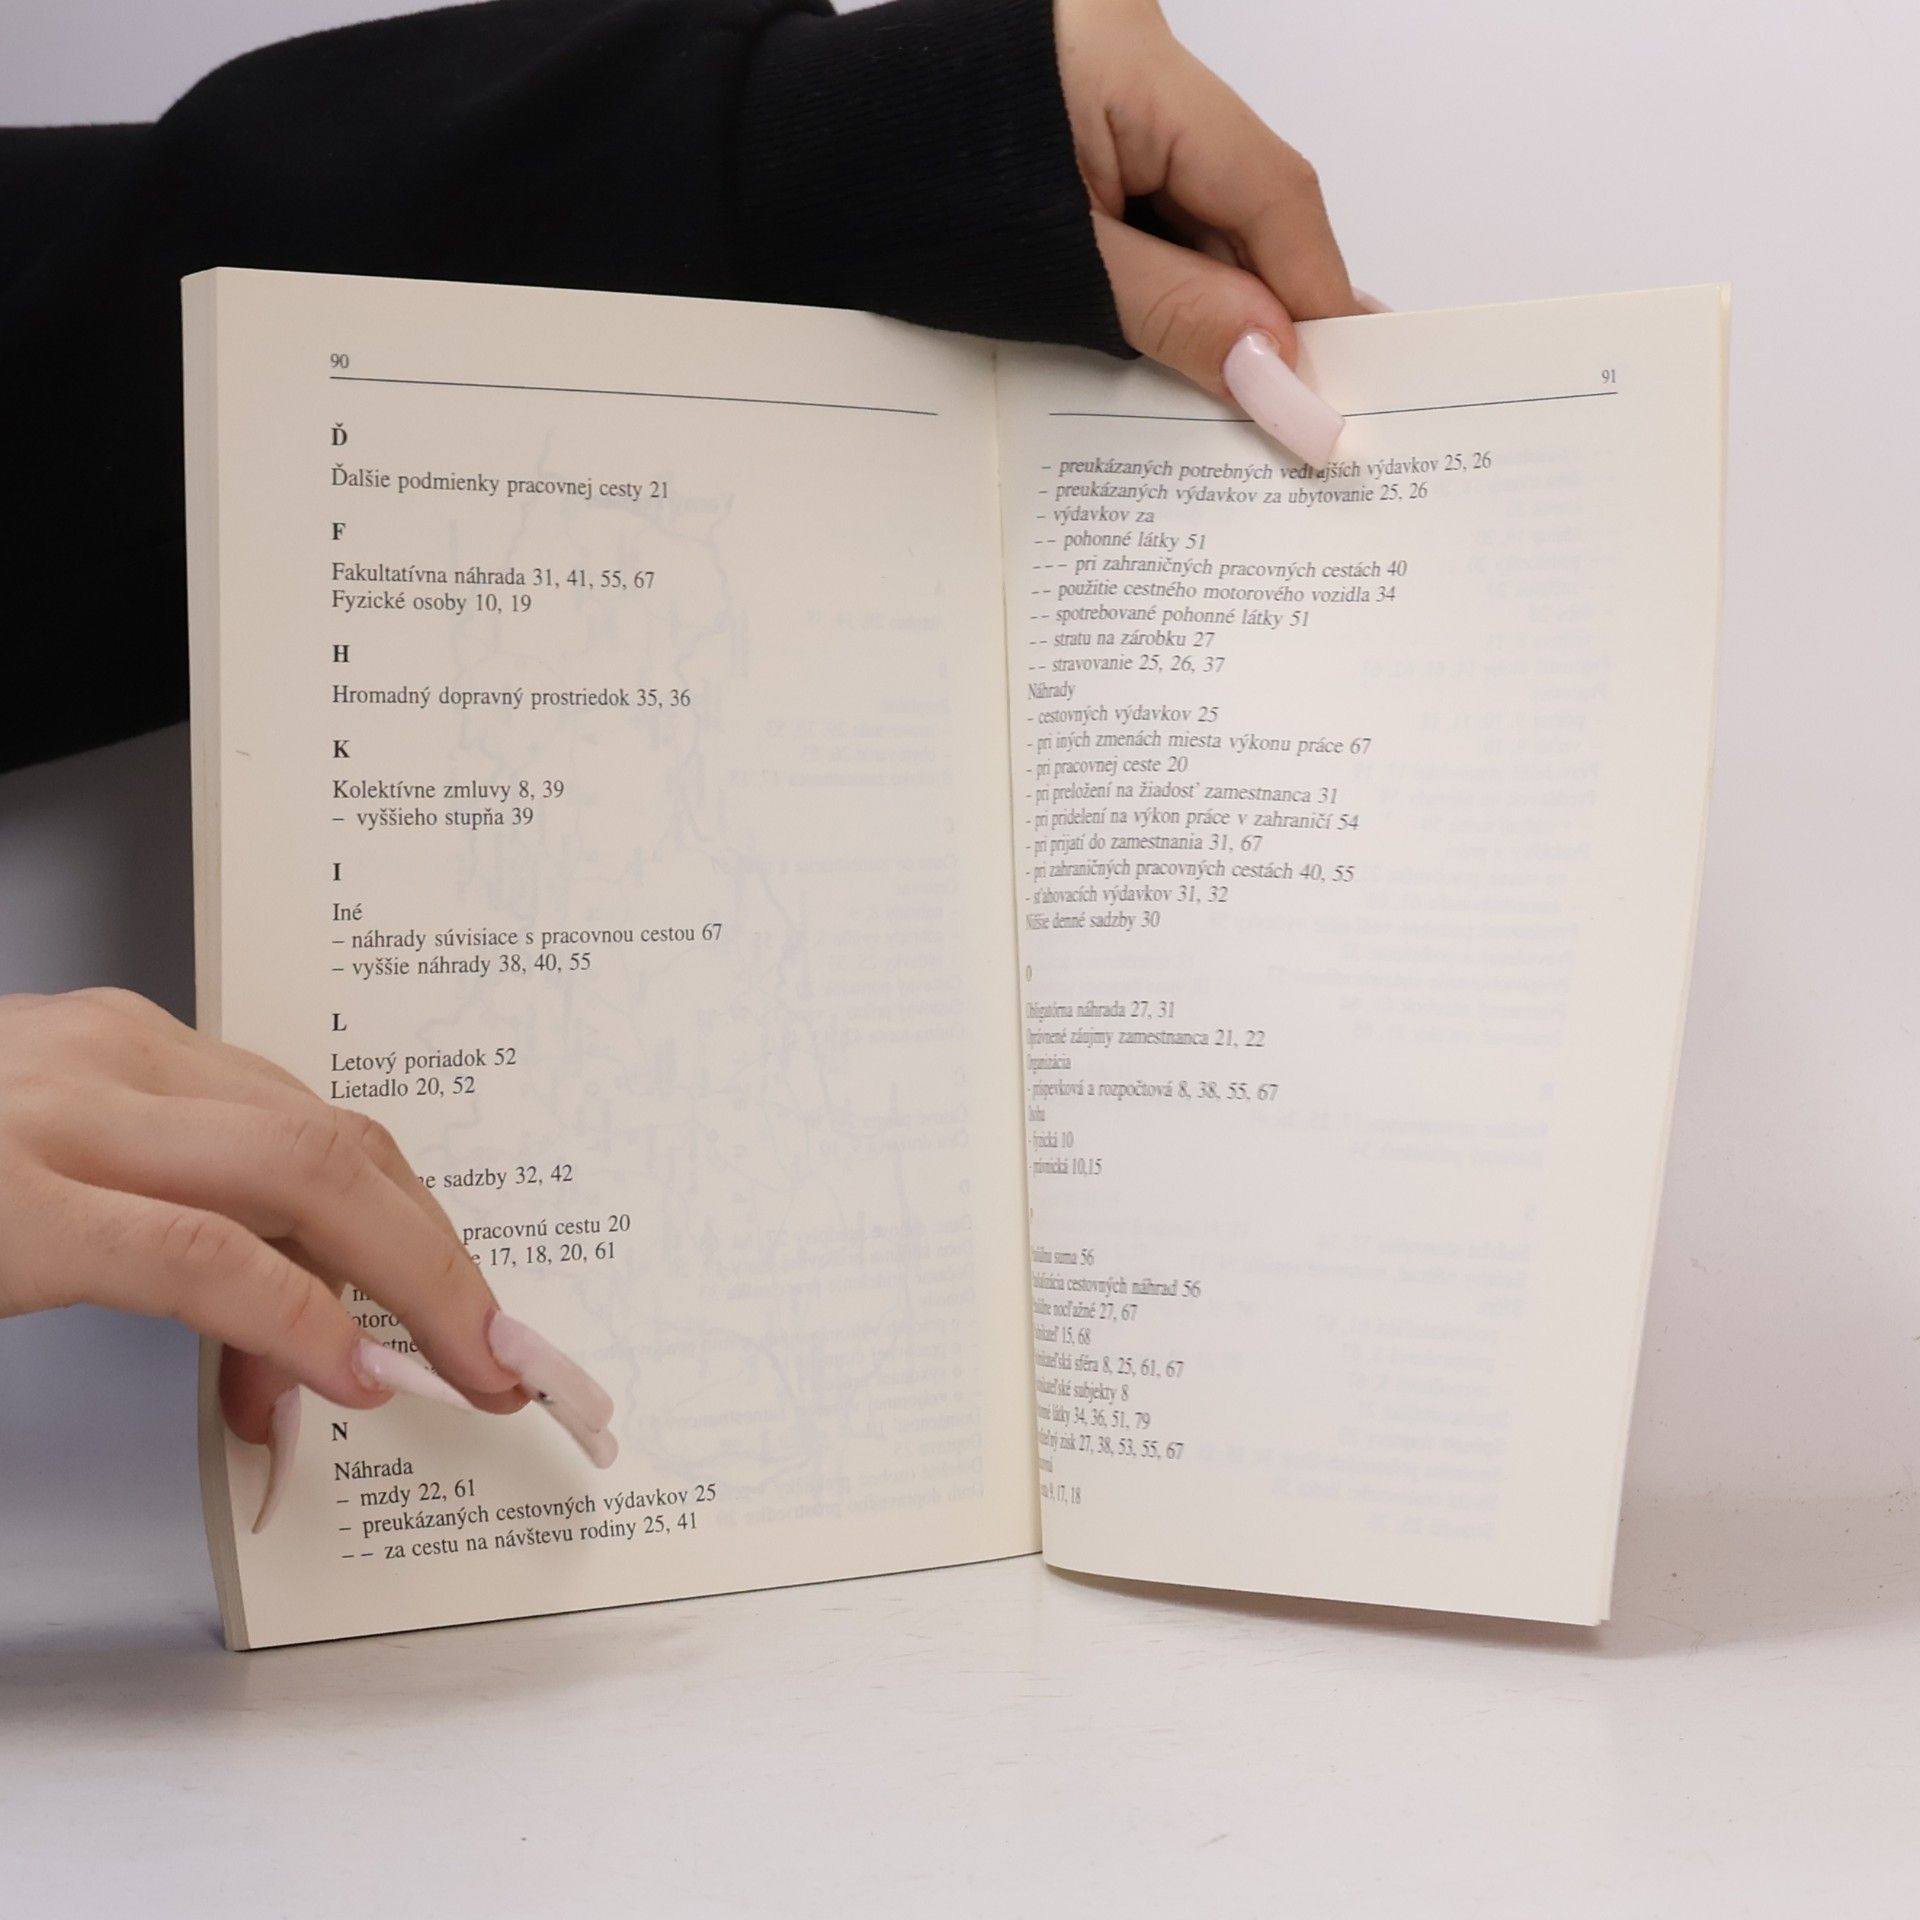 90
Ď
Ďalšie podmienky pracovnej cesty 21
F
Fakultatívna náhrada 31, 41, 55, 67
Fyzické osoby 10, 19
H
Hromadný dopravný prostriedok 35, 36
K
Kolektívne zmluvy 8, 39
– vyššieho stupňa 39
I
Iné
– náhrady súvisiace s pracovnou cestou 67
– vyššie náhrady 38, 40, 55
L
Letový poriadok 52
Lietadlo 20, 52
sadzby 32, 42
pracovnú cestu 20
17, 18, 20, 61
N
Náhrada
– mzdy 22, 61
– preukázaných cestovných výdavkov 25
– – za cestu na návštevu rodiny 25, 41
91
– preukázaných potrebných vedľajších výdavkov 25, 26
– preukázaných výdavkov za ubytovanie 25, 26
– výdavkov za
– – pohonné látky 51
– – – pri zahraničných pracovných cestách 40
– – použitie cestného motorového vozidla 34
– – spotrebované pohonné látky 51
– – stratu na zárobku 27
– – stravovanie 25, 26, 37
Náhrady
– cestovných výdavkov 25
– pri iných zmenách miesta výkonu práce 67
– pri pracovnej ceste 20
– pri preložení na žiadosť zamestnanca 31
– pri pridelení na výkon práce v zahraničí 54
– pri prijatí do zamestnania 31, 67
– pri zahraničných pracovných cestách 40, 55
– sťahovacích výdavkov 31, 32
Nižšie denné sadzby 30
O
Obligatórna náhrada 27, 31
Oprávnené záujmy zamestnanca 21, 22
Organizácia
– príspevková a rozpočtová 8, 38, 55, 67
Osoba
– fyzická 10
– právnická 10,15
suma 56
cestovných náhrad 56
nocľažné 27, 67
15, 68
sféra 8, 25, 61, 67
subjekty 8
látky 34, 36, 51, 79
zisk 27, 38, 53, 55, 67
9, 17, 18